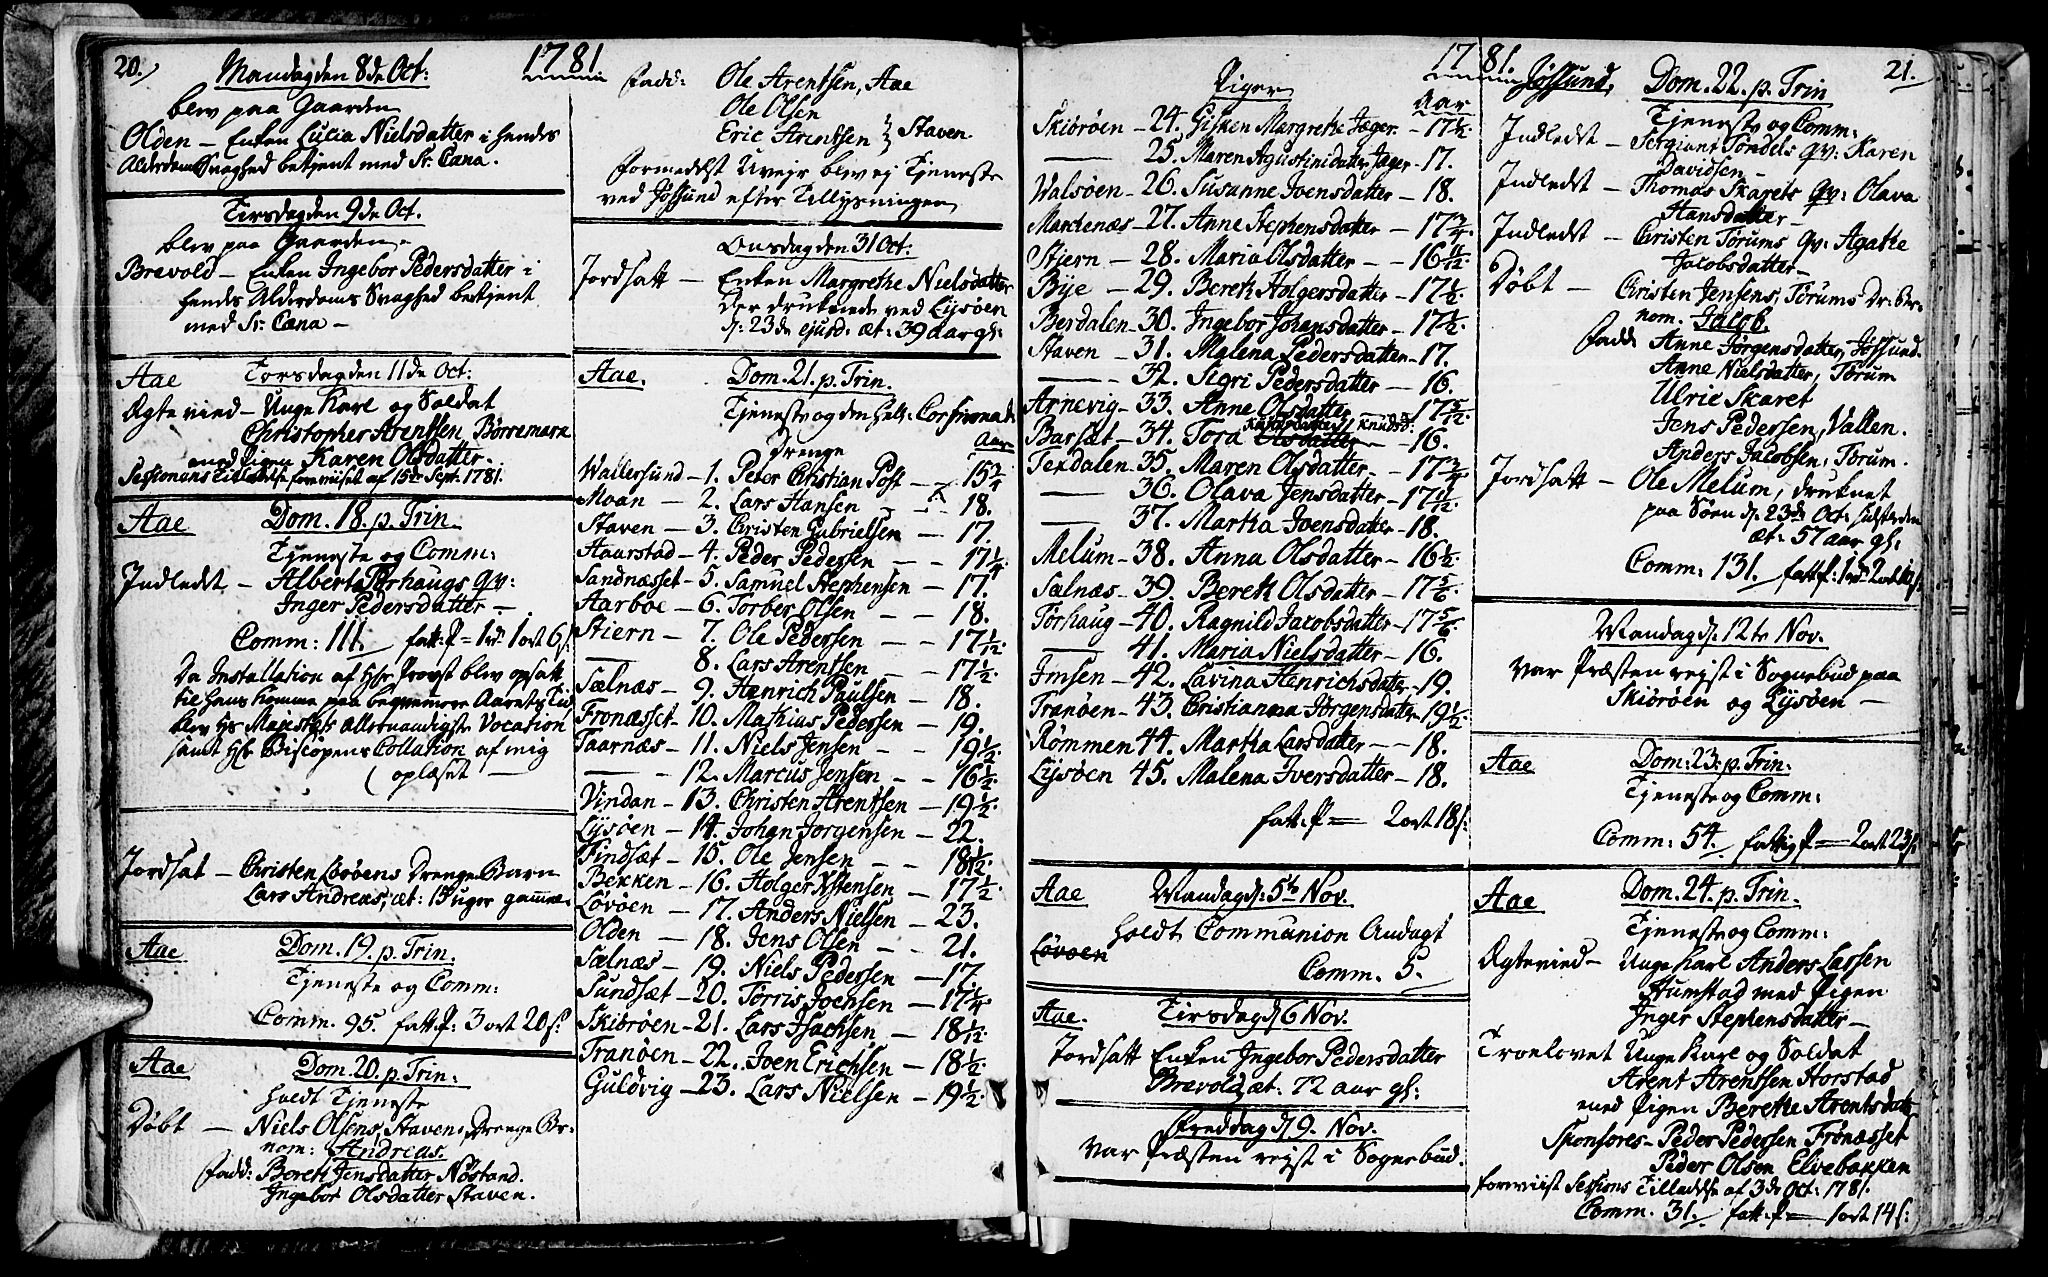 20.
1781
Mandag den 8de Oct:
blev paa Gaarden
Olden – Enken Lucia Nielsdatter i hendes
Alderdoms Svaghed betjent med St: Cæna.
Tirsdag den 9de Oct.
blev paa Gaarden
Brevold – Enken Ingebor Pedersdatter i
hendes Alderdoms Svaghed betjent
med St: Cæna –
Aae Torsdag den 11de Oct:
Ægteviede – Unge Karl og Soldat
Christopher Arentsen Börremark
med Pigen Karen Olsdatter.
Sessionens Tilladelse foreviiset af 15de Sept. 1781.
Aae Dom. 18. p. Trin
Tjeneste og Comm:
Indledt – Albert Törhaugs Qv:
Inger Pedersdatter –
Comm: 111. fatt: P = 1 rd 1 ort 6 s
Da Installation af Hr Provst blev opsatt
til hans Komme paa beqvemmere Aarets Tid
blev Hs Majestets allernaadigste Vocation
samt Hr Biscopens Collation af mig
oplæset –
Jordsat – Christen Lövöens Drenge Barn
Lars Andreas, æt: 1 Juger gammel.
Aae Dom. 19. p. Trin.
Tjeneste og Comm:
Comm. 95. fatt. P: 3 ort 20 s:
Aae Dom. 20. p. Trin:
holdt Tjeneste
Döbt – Niels Olsens, Staven, Drenge Br:
nom: Andreas.
Fadd: Beret Jensdatter Nöstand.
Ingebor Olsdatter Staven.
Fadd: Ole Arentsen, Aae
Ole Olsen
Eric Arentsen } Staven
Formedelst Uvejr blev ej Tjeneste
ved Jössund efter Tillysningen
Onsdag den 31 Oct:
Jordsatt – Enken Margrethe Nielsdatter
der druknede ved Lysöen
d: 23de ejusd: æt: 39 aar gl:
Aae. Dom. 21. p. Trin.
Tjeneste og den hell: Confirmat:
Drenge Aar
Wallersund – 1. Peter Christian Post – 15 3/4
Moan – 2. Lars Hansen – 18.
Staven – 3. Christen Gabrielsen – 17.
Haarstad – 4. Peder Pedersen – 17 1/4
Sandnæsset – 5. Samuel Stephensen – 17.
Aarboe – 6. Torber Olsen – 18.
Stiern – 7. Ole Pedersen – 17 1/12
– 8. Lars Arentsen – 17 1/2
Sælnæs – 9. Henrich Paulsen – 18.
Fronæsset – 10. Mathius Pedersen – 19.
Taarnæs – 11. Niels Jensen – 19 1/2
– 12. Marcus Jensen – 16 1/2
Vindan – 13. Christen Arentsen – 19 1/2
Lysöen – 14. Johan Jorgensen – 22.
Findsæt – 15. Ole Jensen – 18 1/2
Bekken – 16. Holger Ystensen – 17 1/2
Lövöen – 17. Anders Nielsen – 23.
Olden – 18. Jens Olsen – 21.
Sælnæs – 19. Niels Pedersen – 17.
Sundsæt – 20. Torris Jochsen – 17 1/4
Skibröen – 21. Lars Isachsen – 18 1/12
Tranöen – 22. Joen Erichsen – 18 1/2
Guldvig – 23. Lars Nielsen – 19 1/2
1781.
21.
Piger
Aar
Skibröen – 24. Gisken Margrethe Jæger – 17 1/2
– 25. Maren Agustinidatter Jæger – 17.
Walsöen – 26. Susanne Ivensdatter – 18.
Martenæs – 27. Anne Stephensdatter – 17 3/4
Stjern – 28. Maria Olsdatter – 16 11/12
Bye – 29. Bereth Holgersdatter – 17 1/2
Berdalen – 30. Ingebor Johansdatter – 17 1/2
Staven – 31. Malena Pedersdatter – 17.
– 32. Sigri Pedersdatter – 16.
Arnevig – 33. Anne Olsdatter – 17 5/12
Barsæt – 34. Tora Olsdatter Knudsd: – 16.
Texdalen – 35. Maren Olsdatter – 17 3/4
– 36. Olava Jensdatter – 17 11/12
– 37. Martha Ivensdatter – 18.
Melum – 38. Anna Olsdatter – 16 1/2
Sælnæs – 39. Bereth Olsdatter – 17 5/6
Törhaug – 40. Ragnild Jacobsdatter – 17 5/6
– 41. Maria Nielsdatter – 16.
Imsen – 42. Lavina Henrichsdater – 19.
Tranöen – 43. Christianna Jörgensdatter 19 1/2
Römmen 44. Martha Larsdatter – 18.
Lysöen 45. Malena Iversdatter – 18.
fatt: P = 2 ort 18 s:
Aae Mandag d: 5te Nov.
holdt Communion Andagt
Lövöen
Comm. 5.
Aae. Tirsdag d 6 Nov.
Jordsatt Enken Ingebor Pedersdatter
Brevold, æt: 72 aar gl:
Freddag d 9. Nov.
var Præsten rejst i Sognebud.
Jössund, Dom. 22. p. Trin
Tjeneste og Comm:
Indledt – Sergiant Tondels Qv: Karen
Davidsen –
Indledt – Thomas Skarets Qv: Olava
Hansdatter –
Indledt – Christen Törums Qv: Agathe
Jacobsdatter –
Döbt – Christen Jensens, Törums Dr: Br:
nom. Jacob.
Fadd Anne Jörgensdatter, Jössund.
Anne Nielsdatter, Törum
Ulric Skaret
Jens Pedersen, Vallen.
Anders Jacobsen, Törum.
Jordsatt – Ole Melum, druknet
paa Söen d. 23de Oct:
æt: 57 aar gl:
Comm: 131. fatt P: 1 rd 2 ort
Mandag d: 12te Nov.
var Præsten rejst i Sognebud paa
Skibröen og Lysöen –
Aae Dom: 23. p. Trin:
Tjeneste og Comm:
Comm: 54. fattig P = 2 ort 23 s:
Aae Dom. 24. p. Trin.
Tjeneste og Comm:
Ægteviede – Unge Karl Anders Larsen
Humstad med Pigen
Inger Stephensdatter –
Troelovet Unge Karl og Soldat
Arent Arentsen Horstad
med Pigen Berethe Arentsdatt:
Sponsores – Peder Pedersen Frönæsset
Peder Olsen Elvebakken
forevist Sessions Tilladelse af 3de Oct: 1781.
Comm. 31. fatt. P = 1 ort 14 s: